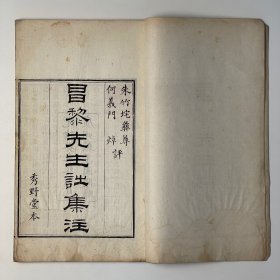 朱竹垞彝尊
何義門焯評
昌黎先生詩集注
秀野堂本